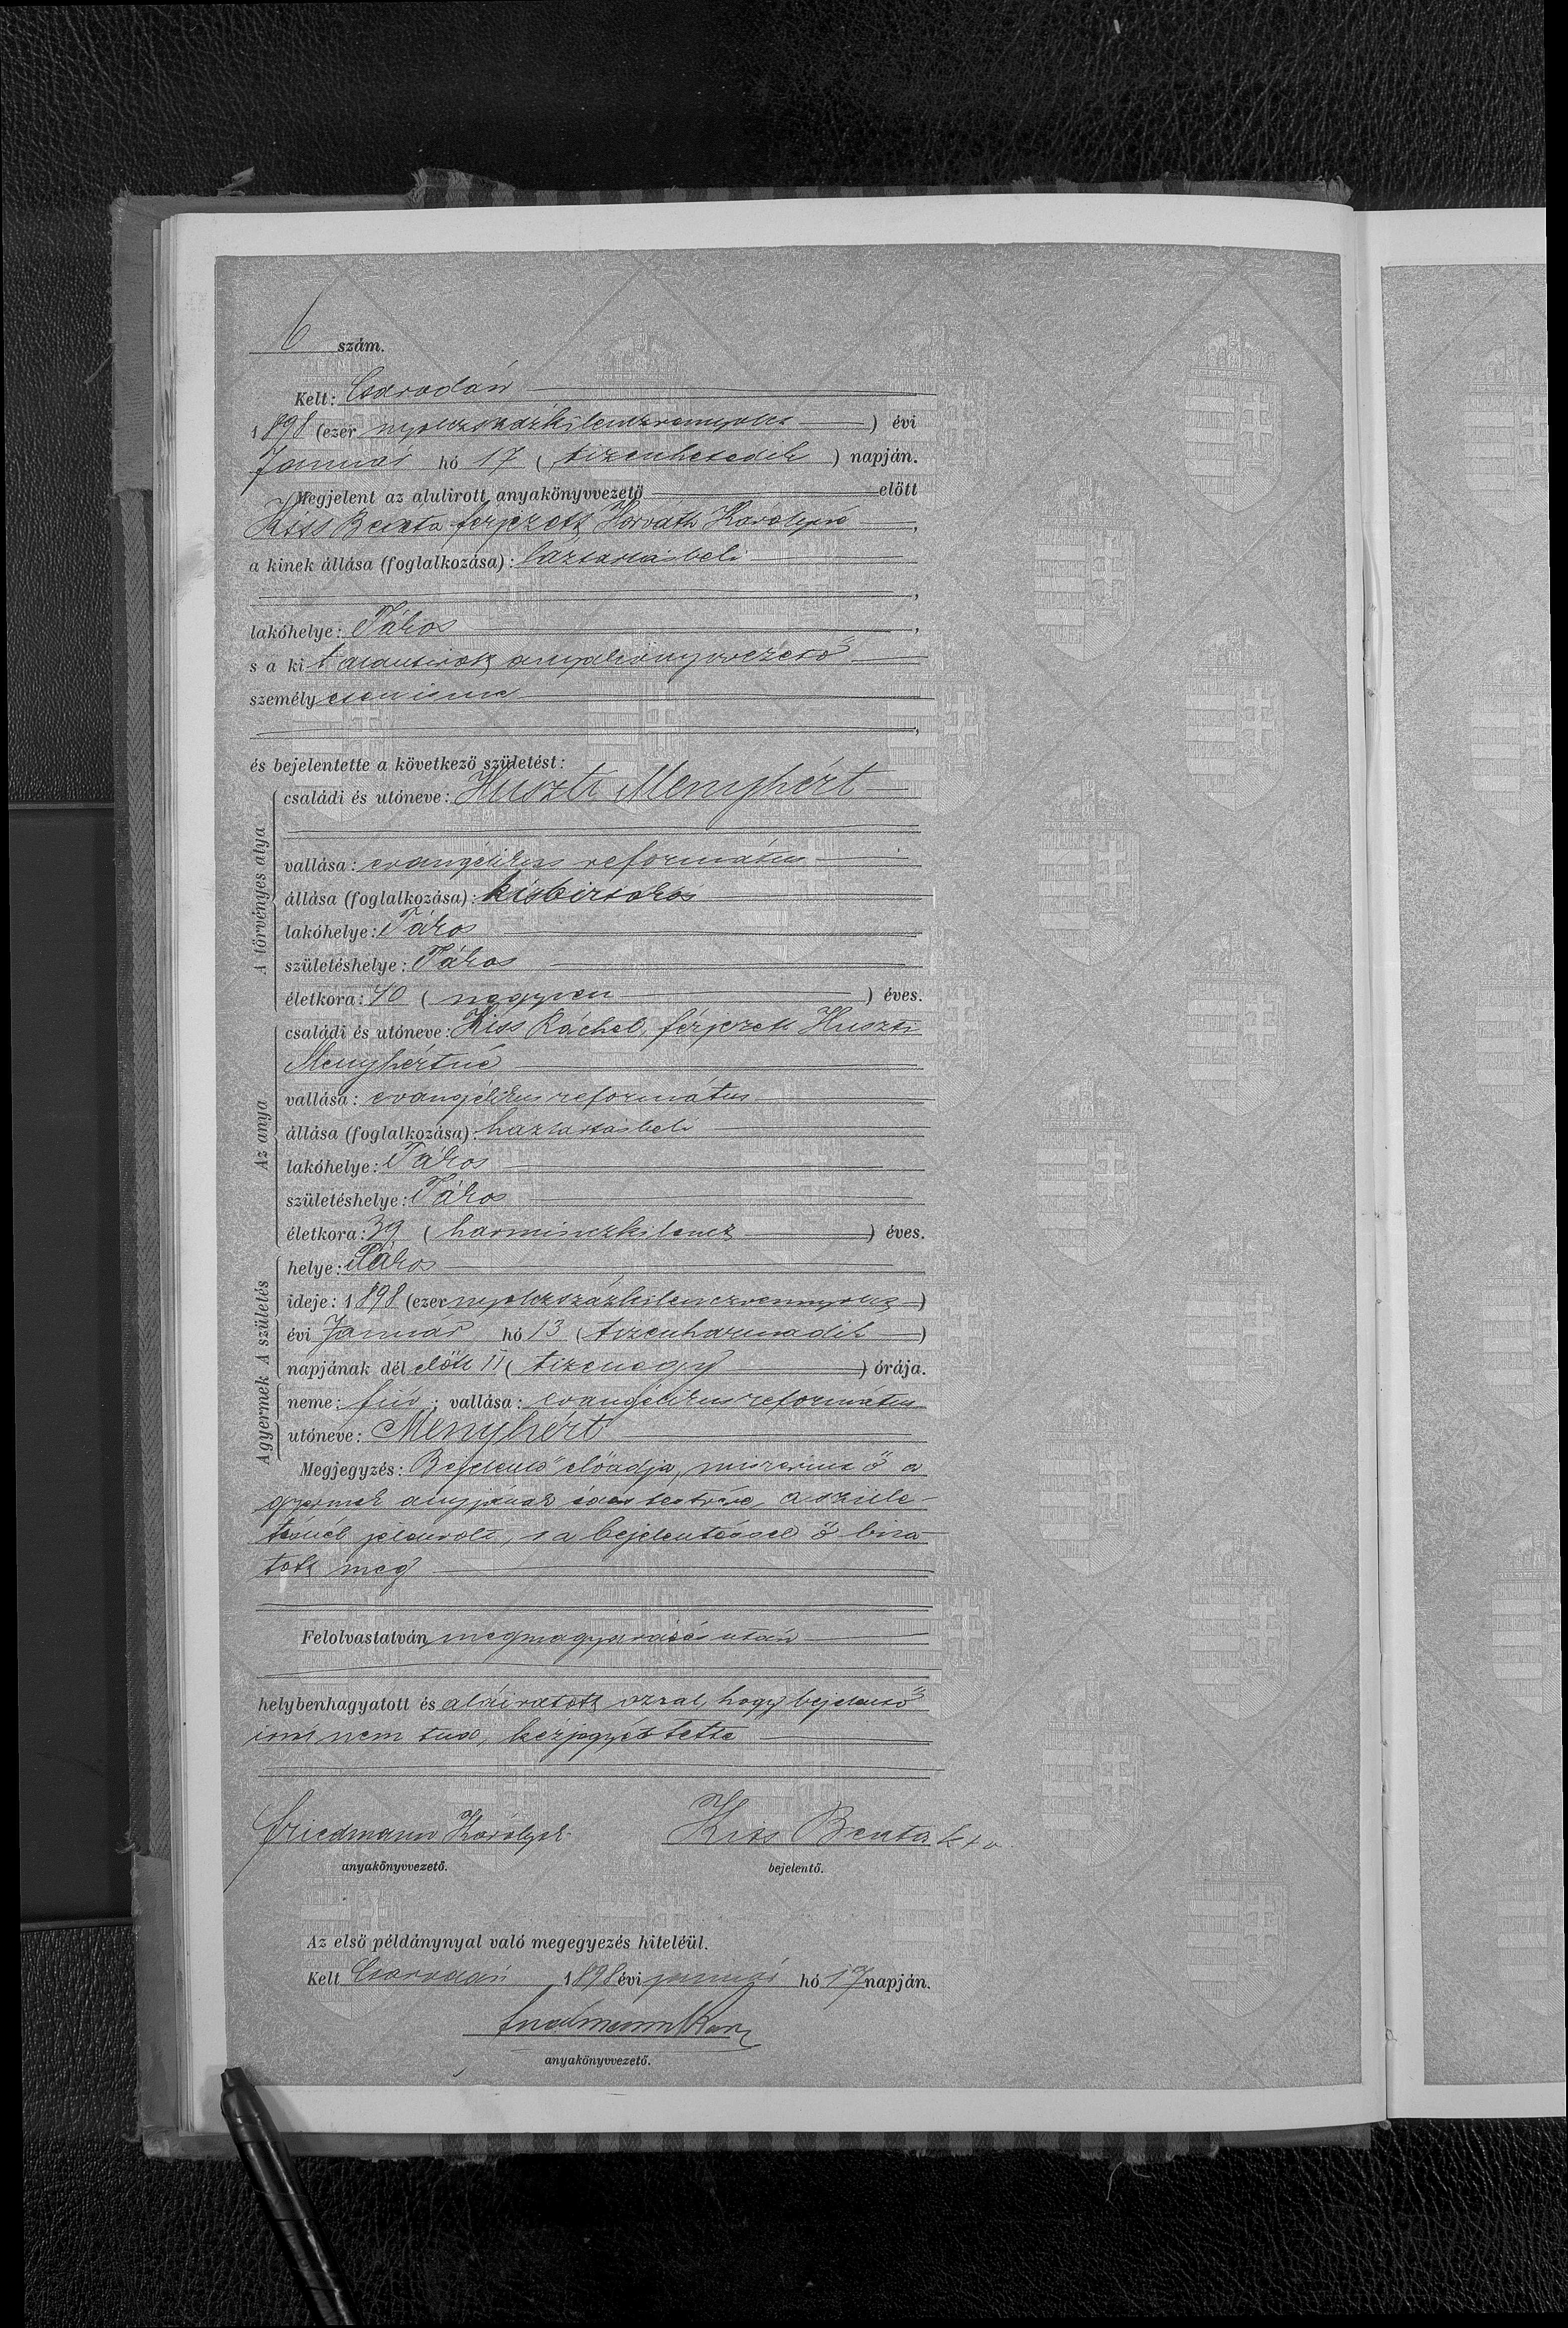 6 szám.
Kelt: Csarodán
1898 (ezer nyolczszázkilenczvennyolcz) évi
Januári hó 17 (tizenhetedik) napján.
Megjelent az alulirott anyakönyvvezető előtt
Kiss Beáta férjezett Horváth Károlyné,
a kinek állása (foglalkozása): háztartásbeli
,
lakóhelye: Tákos,
s a kit alantirott anyakönyvvezető
személyesen ismer
,
és bejelentette a következő születést:
A törvényes atya
családi és utóneve: Huszti Menyhért
vallása: evangélikus református
állása (foglalkozása): kisbirtokos
lakóhelye: Tákos
születéshelye: Tákos
életkora: 40 (negyven) éves.
Az anya
családi és utóneve: Kiss Ráchel, férjezett Huszti
Menyhértné
vallása: evangélikus református
állása (foglalkozása): háztartásbeli
lakóhelye: Tákos
születéshelye: Tákos
életkora: 39 (harminczkilencz) éves.
A születés
helye: Tákos
ideje: 1898 (ezer nyolczszázkilenczvennyolcz)
évi Januári hó 13 (tizenharmadik)
napjának dél előtt 11 (tizenegy) órája.
A gyermek
neme: fiú; vallása: evangélikus református
utóneve: Menyhért
Megjegyzés: Bejelentő előadja, miszerint ő a
gyermek anyjának édes testvére, a szüle-
tésnél jelenvolt, s a bejelentéssel ő biza-
tott meg
Felolvastatván, megmagyarázás után
helybenhagyatott és aláiratott azzal, hogy bejelentő
irni nem tud, kézjegyét tette
Friedmann Károly Kiss Beáta k+v.
anyakönyvvezető. bejelentő.
Az első példánynyal való megegyezés hiteléül.
Kelt Csarodán 1898 évi januári hó 17 napján.
Friedmann Károly
anyakönyvvezető.